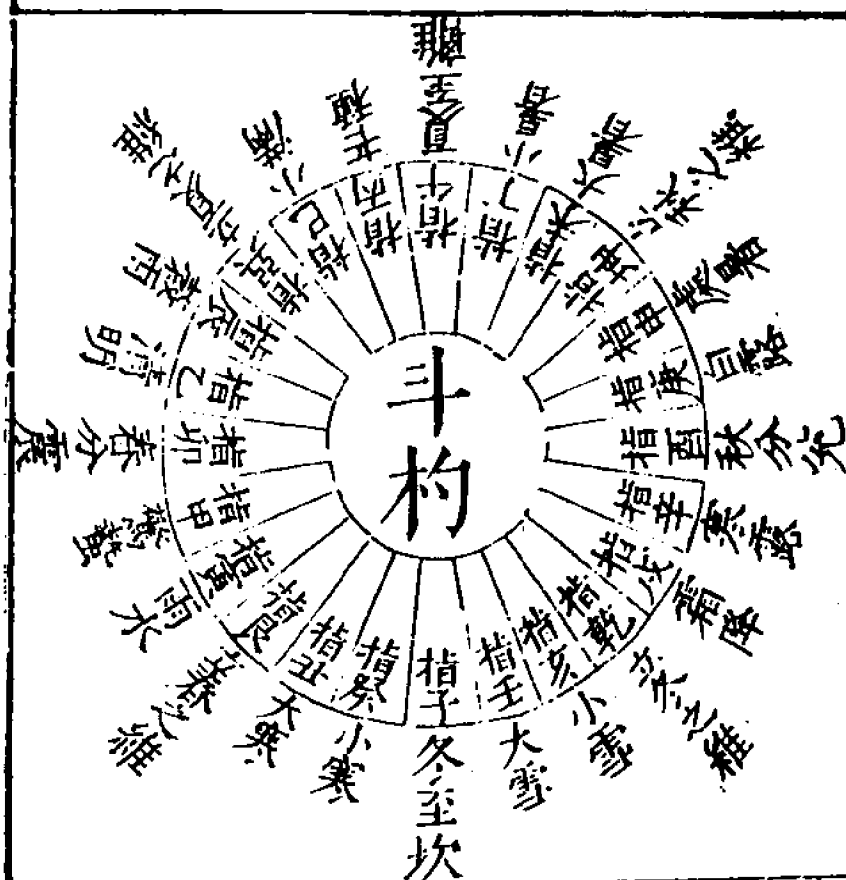 斗杓
指子
冬至坎
指癸
小寒
指丑
大寒
指艮
立春之維
指寅
雨水
指甲
驚蟄
指卯
春分震
指乙
清明
指辰
穀雨
指巽
立夏之維
指巳
小滿
指丙
芒種
指午
夏至離
指丁
小暑
指未
大暑
指坤
立秋之維
指申
處暑
指庚
白露
指酉
秋分兊
指辛
寒露
指戌
霜降
指乾
立冬之維
指亥
小雪
指壬
大雪